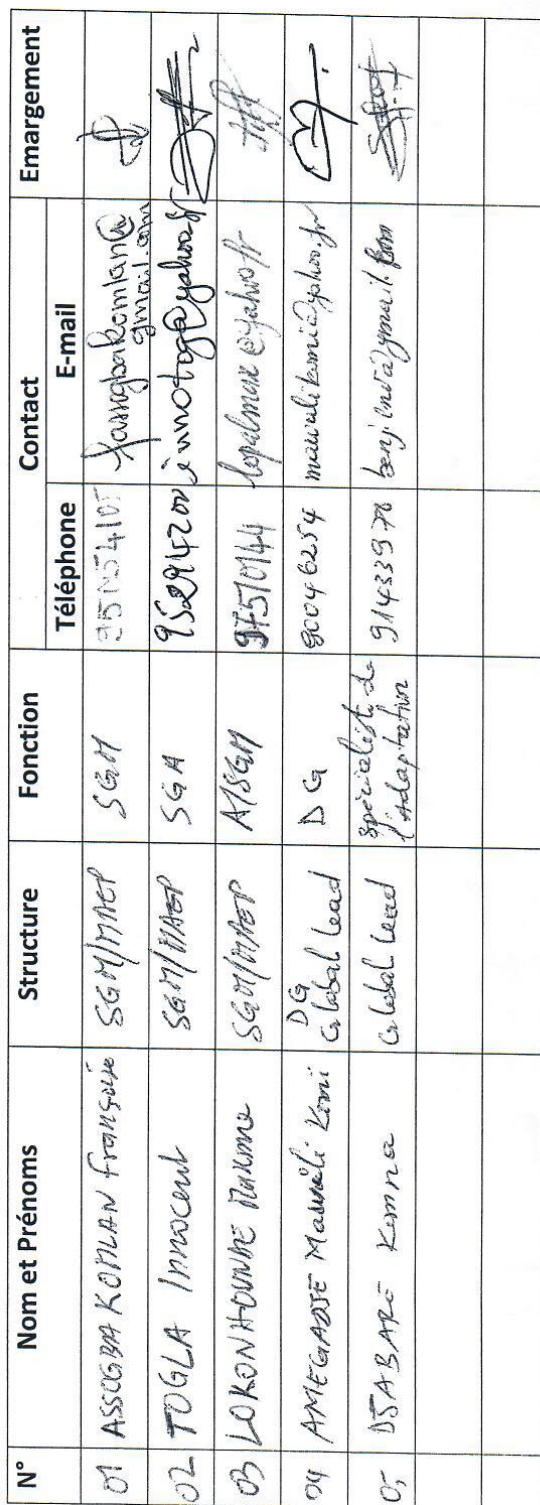 N° Nom et Prénoms Structure Fonction Contact Emargement
Téléphone E-mail
01 ASSOGBA KOMLAN Françoise SGM/MAEP SGM
gmail.com
02 TOGLA Innocent SGM/MAEP SGA 95291420 innotog@yahoo.fr
03 LOKONHOUNDE Maxime SGM/MAEP A/SGM 97510144 lopalmax@yahoo.fr
04 AMEGADJE Mawuli Komi DG Global Lead DG 90046254 mawulikomi@yahoo.fr
05 DJABARE Komna Global Lead Spécialiste de l'Adaptation 91433978